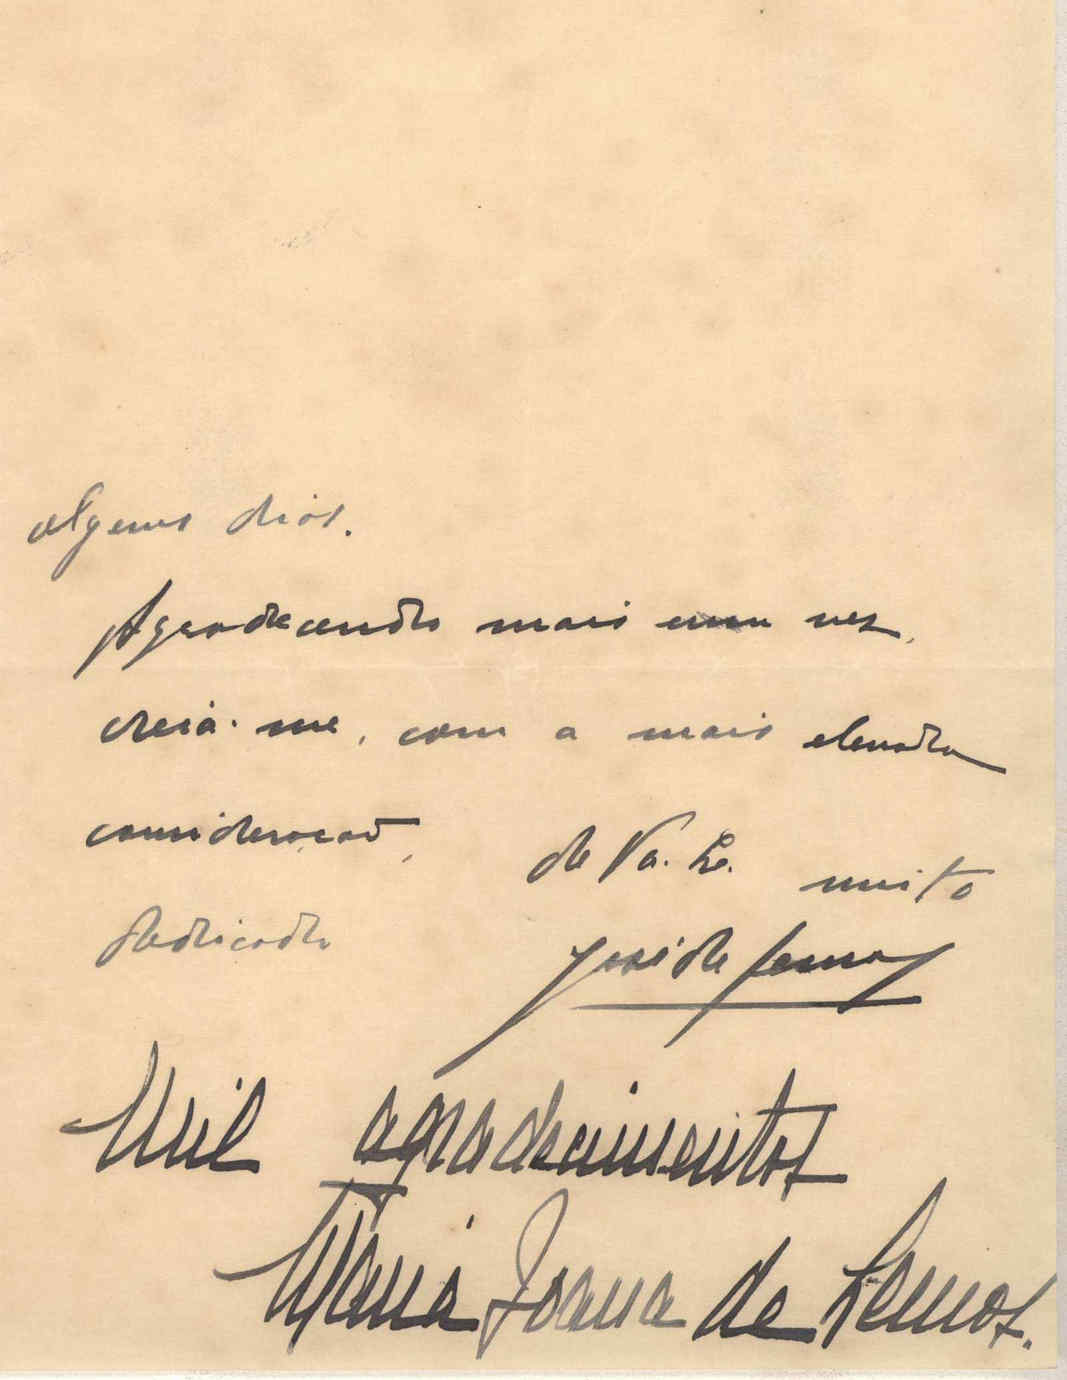 alguns dias.
Agradecendo mais uma vez,
creia-me, com a mais elevada
consideração,
de V. Ex. muito
dedicado
José de Lemos
Mil agradecimentos
Maria Joana de Lemos.